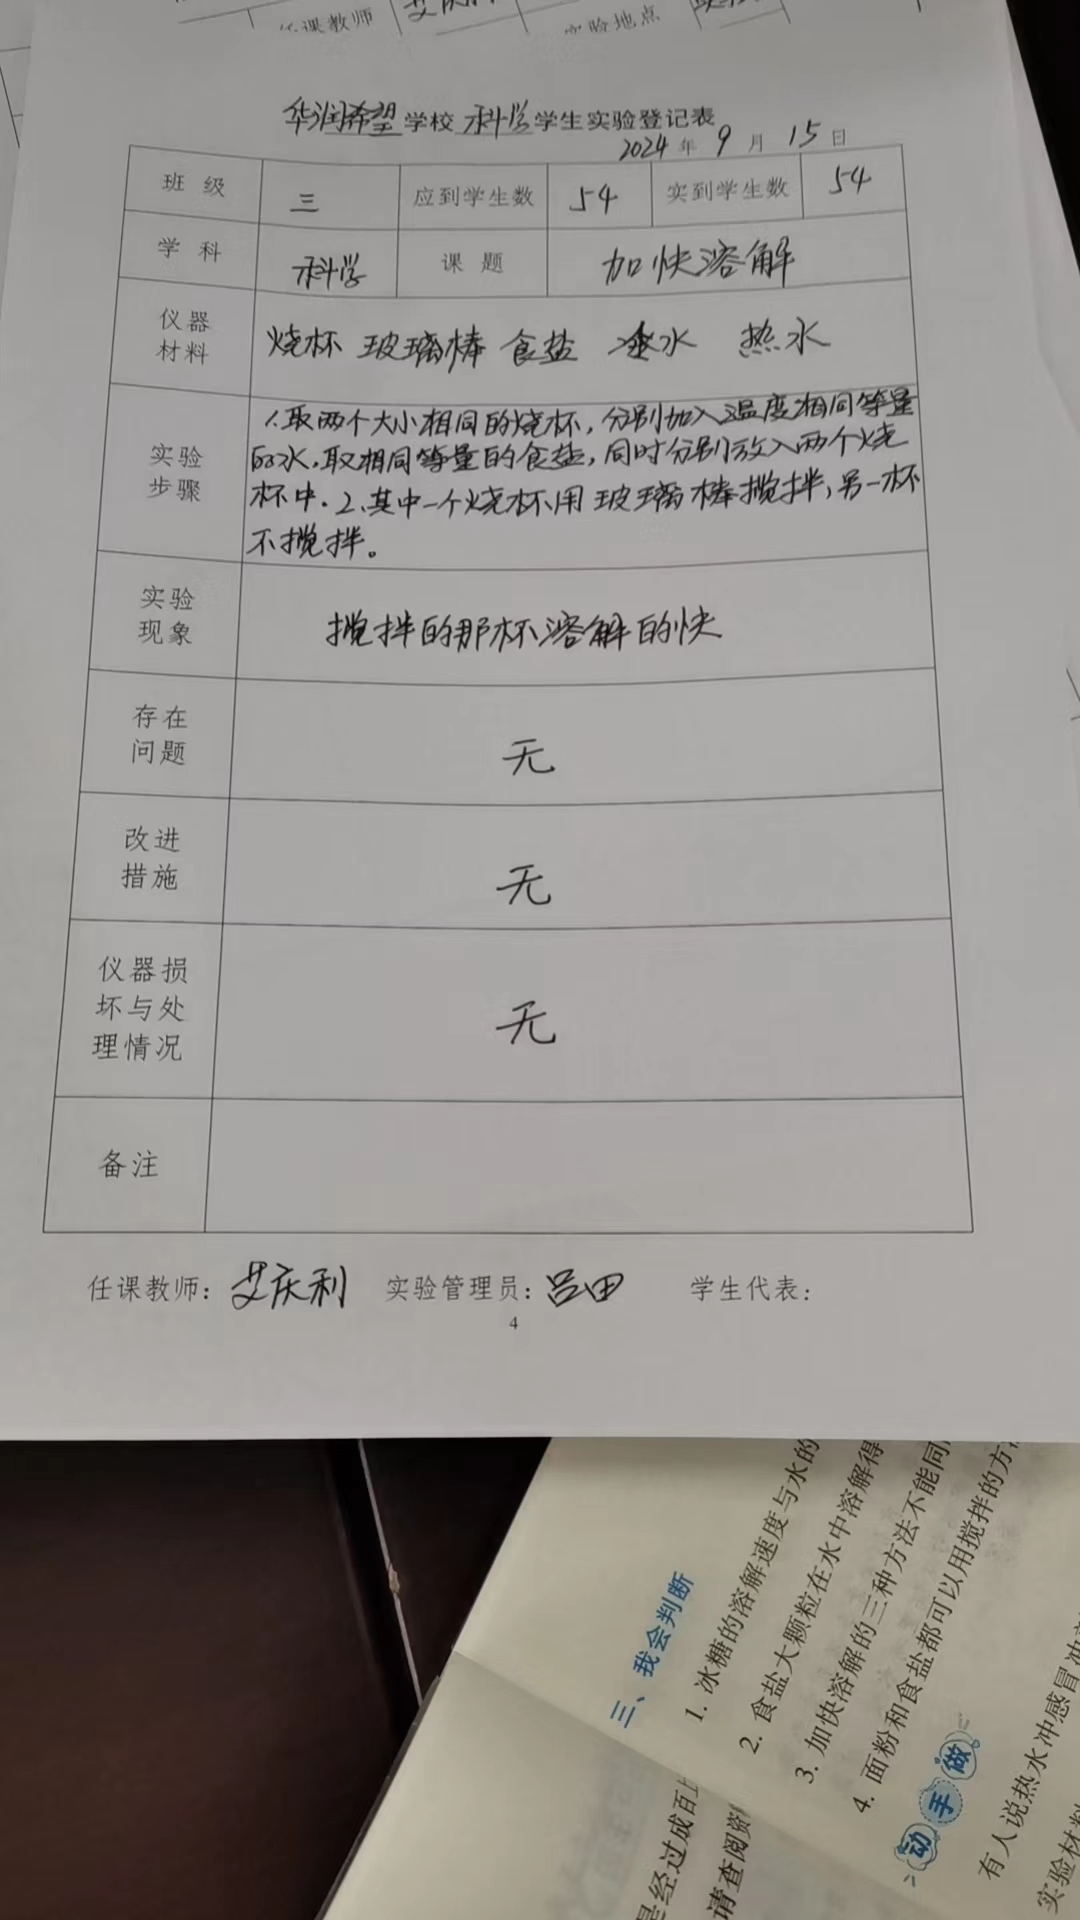 任课教师
实验地点
华润希望学校 科学学生实验登记表
2024年9月15日
班级 三 应到学生数 54 实到学生数 54
学科 科学 课题 加快溶解
仪器材料 烧杯 玻璃棒 食盐 水 热水
实验步骤
1.取两个大小相同的烧杯，分别加入温度相同等量
的水，取相同等量的食盐，同时分别放入两个烧
杯中。2、其中一个烧杯用玻璃棒搅拌，另一杯
不搅拌。
实验现象 搅拌的那杯溶解的快
存在问题 无
改进措施 无
仪器损坏与处理情况 无
备注
任课教师：艾庆利 实验管理员：吕田 学生代表：
4
三、我会判断
1. 冰糖的溶解速度与水的
2. 食盐大颗粒在水中溶解得
3. 加快溶解的三种方法不能同
4. 面粉和食盐都可以用搅拌的方
动手做
有人说热水冲感冒冲
实验材料
是经过成百上
请查阅资